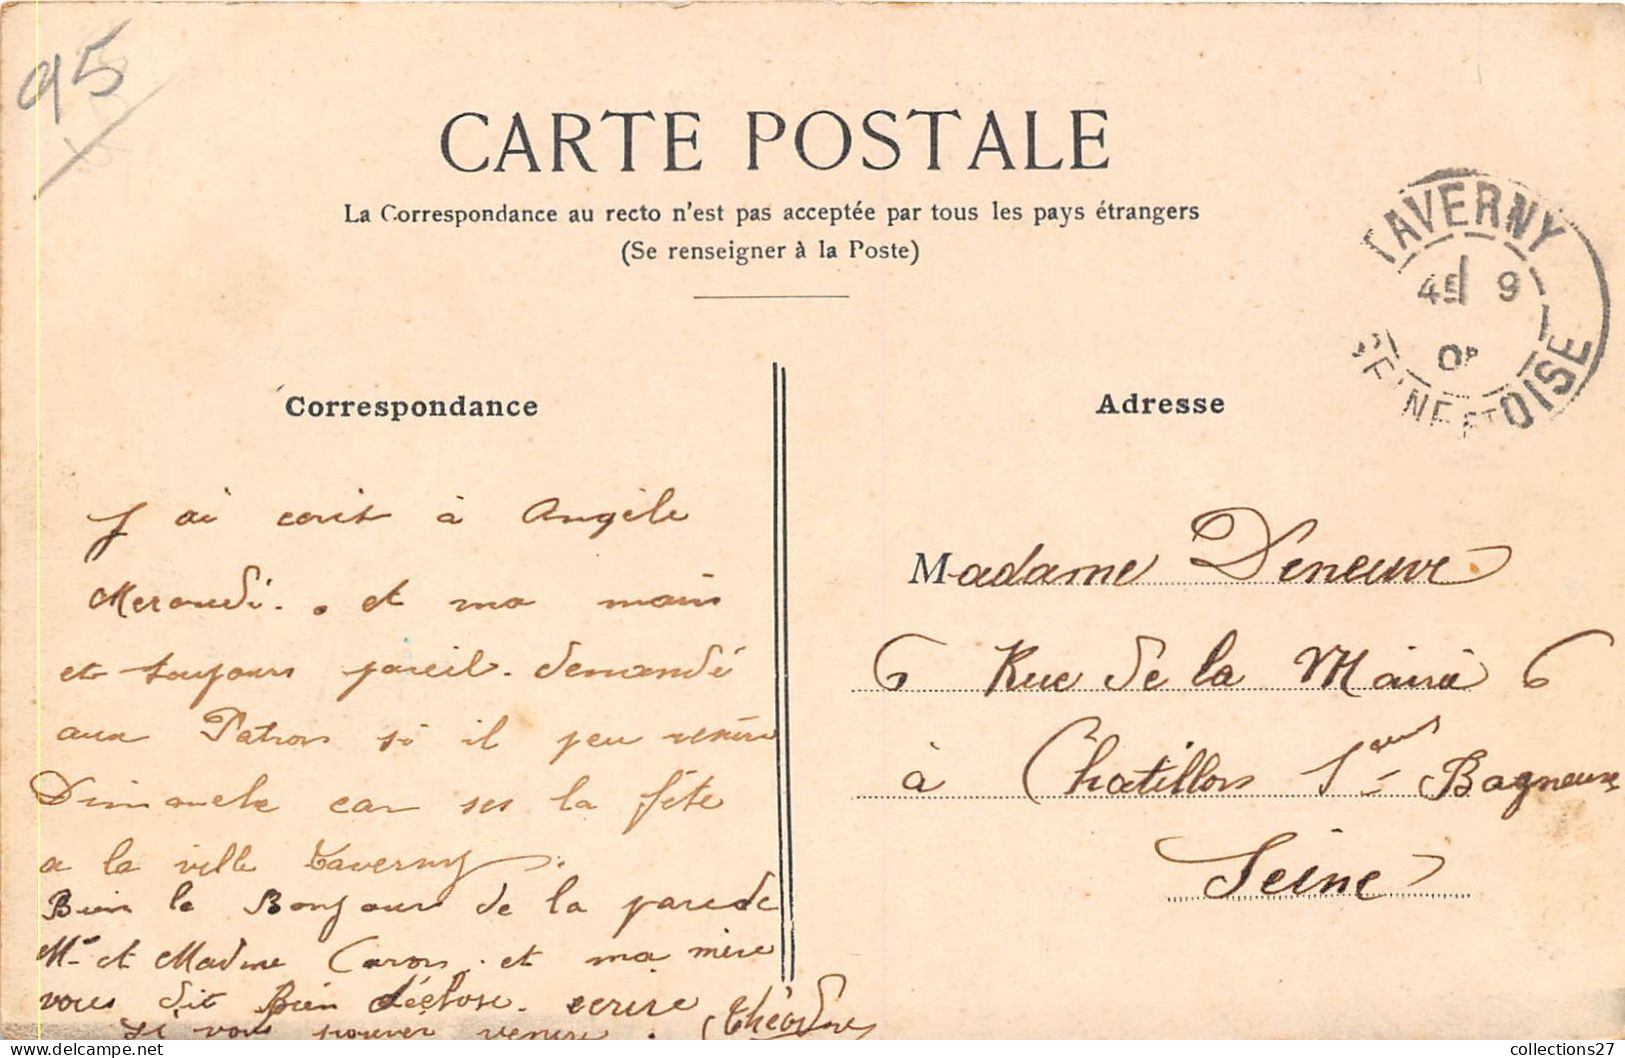 95
CARTE POSTALE
La Correspondance au recto n'est pas acceptée par tous les pays étrangers
(Se renseigner à la Poste)
TAVERNY
45 9
SEINE ET OISE
Correspondance
J ai ecrit à Angèle
et ma main
et toujours pareil. demandé
aux Patron si il peu venire
Dimanche car ses la fête
a la ville taverny
Bien le Bonjour de la parede
Mr et Madme Caron. et ma mère
vous dit Bien ecrire
si vous pouver venire. Théodore
Adresse
Madame Deneuve
6 Rue de la Mairie 6
à Chatillon Bagneux
Seine
collections27